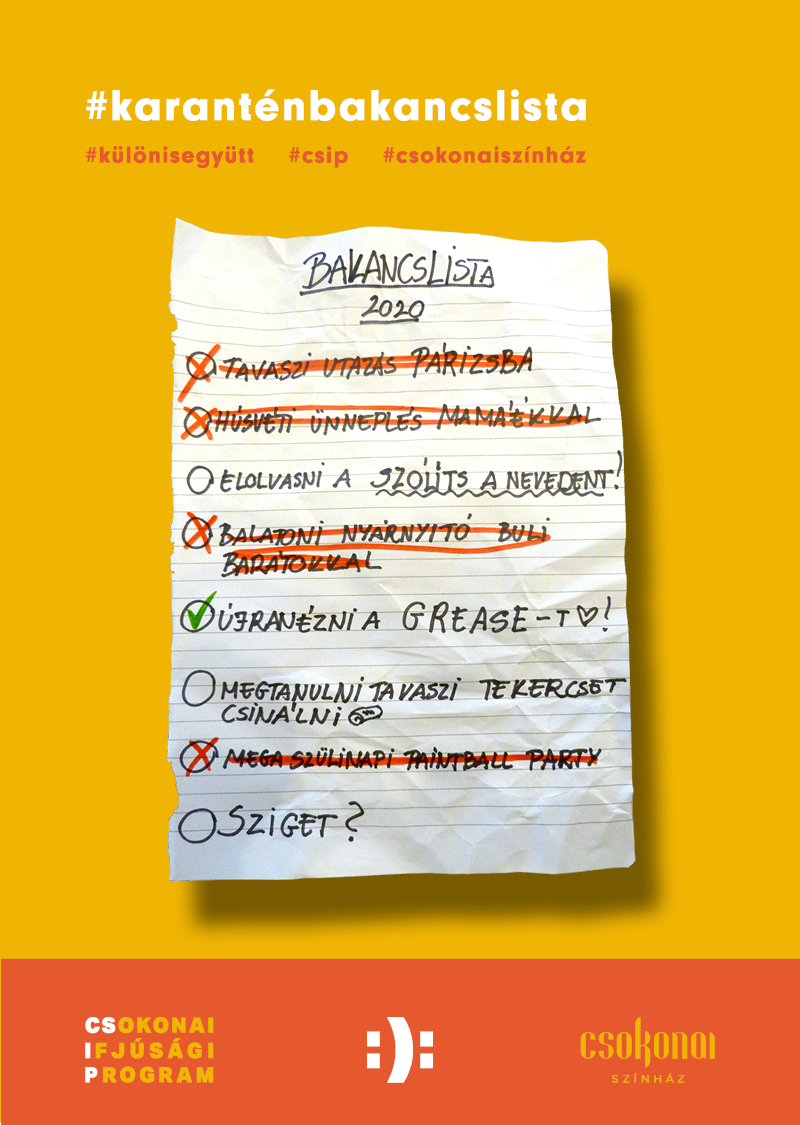 #karanténbakancslista
#különisegyütt #csip #csokonaiszínház
BAKANCSLISTA
2020
TAVASZI UTAZÁS PÁRIZSBA
HÚSVÉTI ÜNNEPLÉS MAMÁÉKKAL
ELOLVASNI A SZÓLÍTS A NEVEDEN!
BALATONI NYÁRNYITÓ BULI
BARÁTOKKAL
ÚJRANÉZNI A GREASE-T ♡!
MEGTANULNI TAVASZI TEKERCSET
CSINÁLNI
MEGA SZÜLINAPI PAINTBALL PARTY
SZIGET?
CSOKONAI
IFJÚSÁGI
PROGRAM
:):
csokonai
SZÍNHÁZ